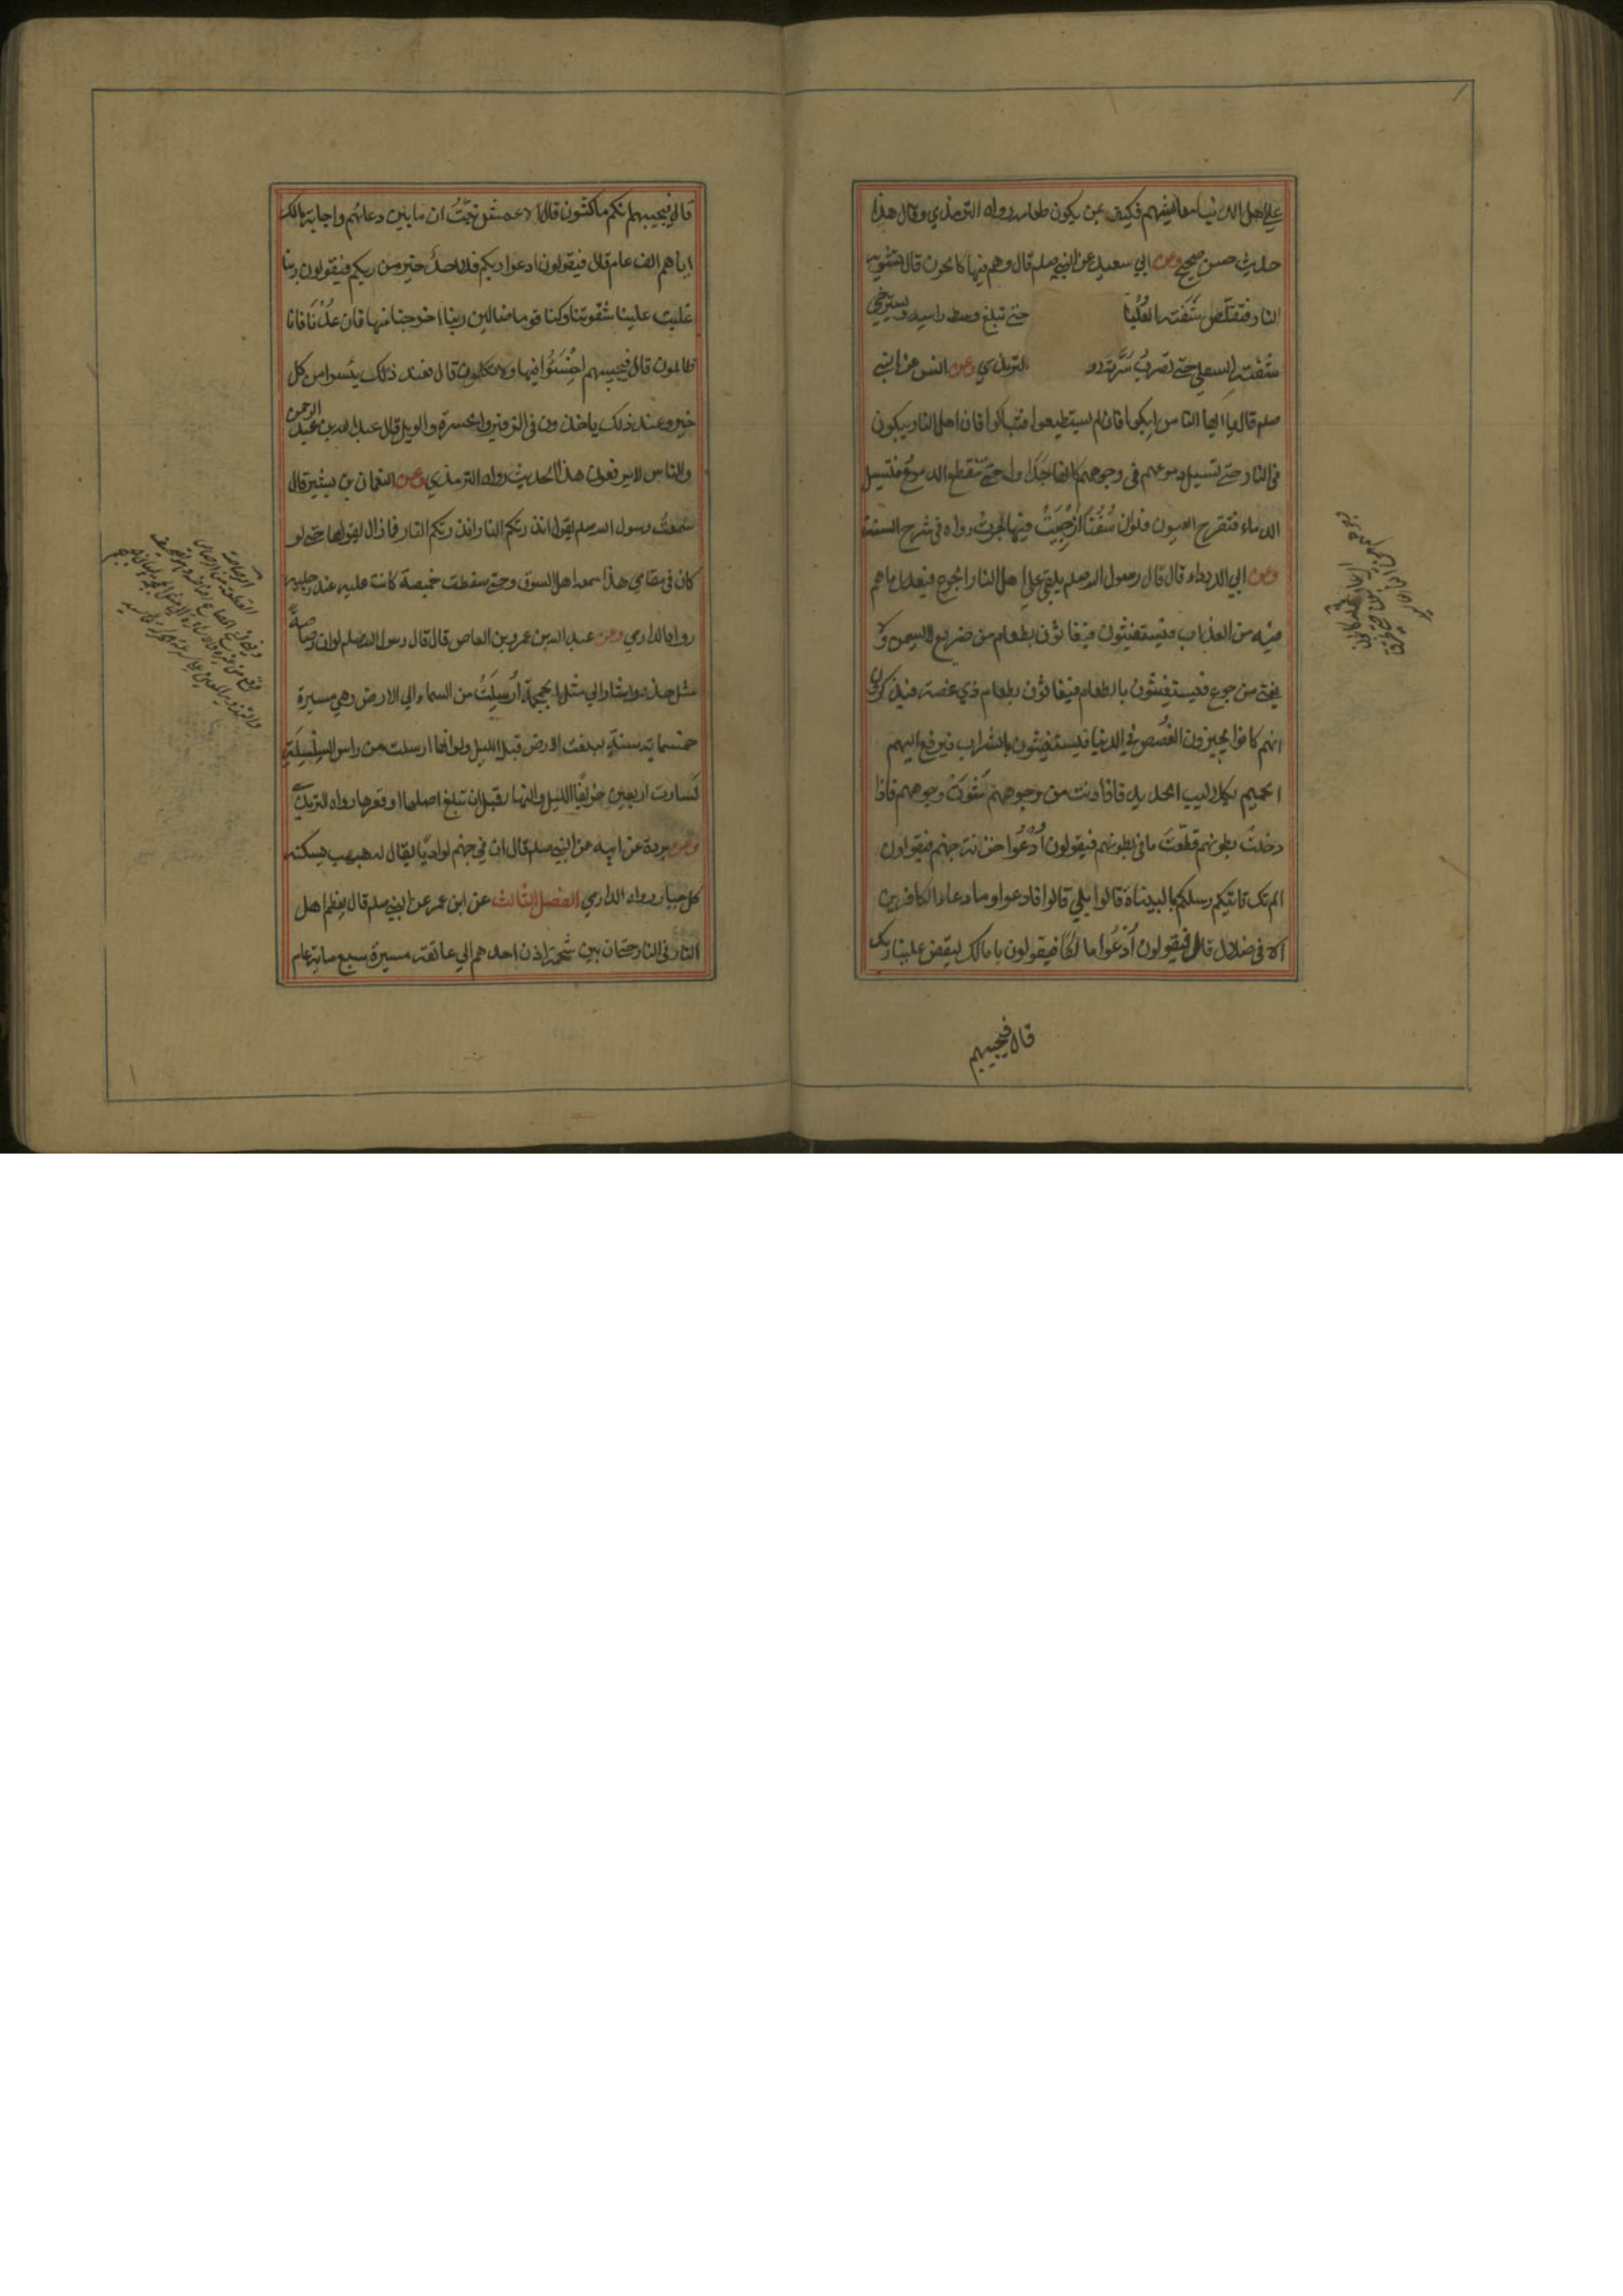 علي اهل الدنيا معايشهم فكيف بمن يكون طعامه رواه الترمذي وقال هذا
حديث حسن صحيح وعن ابي سعيد عن النبي صلم قال وهم فيها كالحون قال تشويه
النار فتقلص شَفَته العُليا حتى تبلغ وسط راسه ويسترخي
شفته السفلي حتى تضرب سُرَّته رو الترمذي وعن انس عن النبي
صلم قال يا ايها الناس ابكوا فان لم تستطيعوا فتباكوا فان اهل النار يبكون
في النار حتى تسيل دموعهم في وجوههم كانها جَدَاول حتى تنقطع الدموع فتسيل
الدماء فتقرح العيون فلوان سُفُنًا اُزْجِيَتْ فيها لجرت رواه في شرح السنة
وعن ابي الدرداء قال قال رسول الله صلم يلقى علي اهل النار الجوع فيعدل ما هم
فيه من العذاب فيستغيثون فيغاثون بطعام من ضريع لا يسمن ولا
يغني من جوع فيستغيثون بالطعام فيغاثون بطعام ذي غصة فيذكرون
انهم كانوا يجيزون الغُصَص في الدنيا فيستغيثون بالشراب فيرفع اليهم
الحميم بكلاليب الحديد فاذا دنت من وجوههم شَوَتْ وجوههم فاذا
دخلت بطونهم قطّعتْ ما في بطونهم فيقولون اُدْعُوا خزنة جهنم فيقولون
الم تك تاتيكم رسلكم بالبينات قالوا بلي قالوا فادعوا وما دعاء الكافرين
الا في ضلال قال فيقولون اُدْعُوا مالكًا فيقولون يا مالك ليقض علينا ربك
قال فيجيبهم
قال فيجيبهم انكم ماكثون قال الاعمش نُبِّئْتُ ان ما بين دعائهم واجابة مالك
اياهم الف عام قال فيقولون ادعوا ربكم فلا احد خير من ربكم فيقولون ربنا
غلبت علينا شقوتنا وكنا قوما ضالين ربنا اخرجنا منها فان عُدْنَا فانا
ظالمون قال فيجيبهم اخْسَئُوا فيها ولا تكلمون قال فعند ذلك يئسوا من كل
خير وعند ذلك ياخذون في الزفير والحسرة والويل قال عبد الله بن عبد الرحمن
والناس لا يرفعون هذا الحديث رواه الترمذي وعن النعمان بن بشير قال
سمعتُ رسول الله صلم يقول انذرتكم النار انذرتكم النار فما زال يقولها حتى لو
كان في مقامي هذا سمعه اهل السوق وحتى سقطت خميصة كانت عليه عند رجليه
رواه الدارمي وعن عبد الله بن عمرو بن العاص قال قال رسول الله صلم لو ان رصاصةً
مثل هذه واشار الي مثل الجمجمة اُرسِلَتْ من السماء الي الارض وهي مسيرة
خمسماية سنةٍ لبلغت الارض قبل الليل ولو انها ارسلت من راس السِّلْسِلَةِ
لَسارت اربعين خريفًا الليل والنهار قبل ان تبلغ اصلها او قعرها رواه الترمذي
وعن بردة عن ابيه عن النبي صلم قال ان في جهنم لواديًا يقال له هبهب يسكنه
كل جبار رواه الدارمي الفصل الثالث عن ابن عمر عن النبي صلم قال يعظم اهل
النار في النار حتى ان بين شحمة اذن احدهم الي عاتقه مسيرة سبع ماية عام